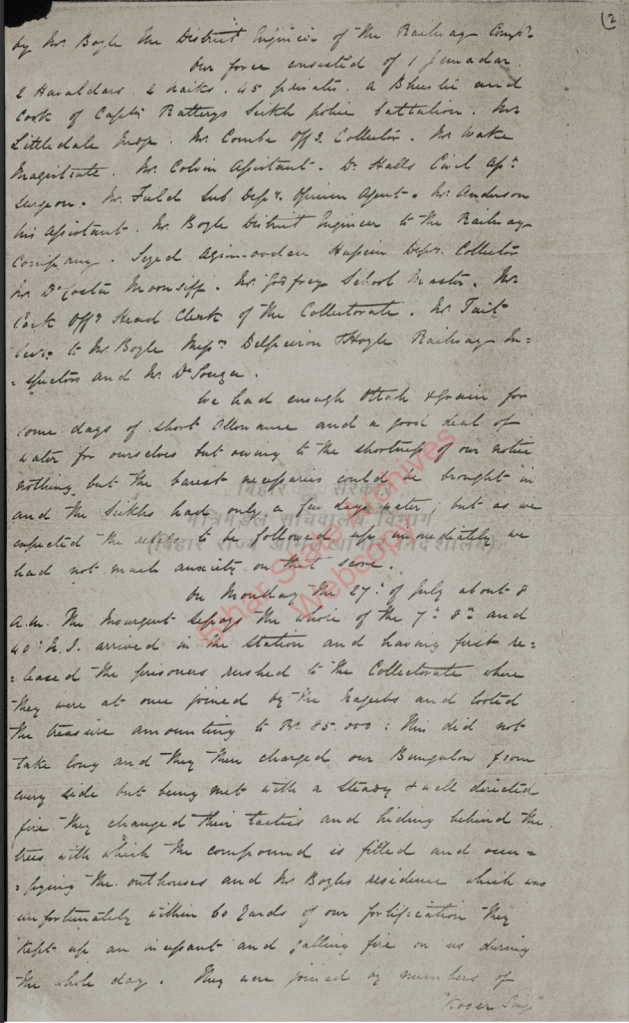 (2
by Mr. Boyle the District Engineer of the Railway Compy.
Our force consisted of 1 jemadar
2 Havaldars 2 naiks. 45 privates. a Bheestie and
Cook of Captn. Rattrays Seikh police battalion. Mr.
Littledale Judge. Mr. Combe Offg. Collector. Mr Wake
Magistrate. Mr. Colvin Assistant. Dr. Halls Civil Asst.
Surgeon. Mr. Field Sub Depy. Opium Agent. Mr. Anderson
his Assistant. Mr. Boyle District Engineer to the Railway
Company. Syed Azimooden Hussein Depy. Collector
Mr. DaCosta Moonsiff. Mr. Godfrey School Master. Mr.
Cock Offg. Head Clerk of the Collectorate. Mr. Tait
to Mr. Boyle Messrs. Delpeiron & Hoyle Railway In=
=spectors and Mr. DeSouza.
We had enough Ottah & grain for
some days of short allowance and a good deal of
water for ourselves but owing to the shortness of our notice
nothing but the barest necessaries could be brought in
and the Seikhs had only a few days water; but as we
expected the rebels to be followed up immediately we
had not much anxiety on that score.
On Monday the 27th. of July about 8
a.m. The Insurgent Sepoys the whole of the 7th. 8th. and
40th. N.I. arrived in the station and having first re=
=leased the prisoners rushed to the Collectorate where
they were at once joined by the Najeebs and looted
the treasure amounting to Rs. 85.000: This did not
take long and they then charged our Bungalow from
every side but being met with a steady & well directed
fire they changed their tactics and hiding behind the
trees with which the compound is filled and occu=
=pying the outhouses and Mr Boyles residence which was
unfortunately within 60 yards of our fortification they
kept up an incessant and galling fire on us during
the whole day. They were joined by numbers of
"Kooer Sing"
बिहार सरकार
मंत्रिमंडल सचिवालय विभाग
(बिहार राज्य अभिलेखागार निदेशालय)
Bihar State Archives
Webscopy